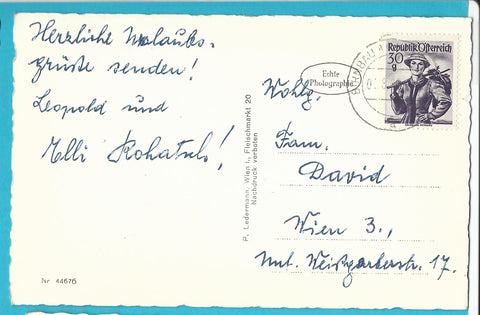 Herzliche Urlaubs-
grüße senden!
Leopold und
Elli Kohatsch!
Nr 44676
P. Ledermann, Wien I., Fleischmarkt 20
Nachdruck verboten
Echte
Photographie
Republik Österreich
30
g
Wohlg.
Fam.
David
Wien 3.,
Unt. Weißgerberstr. 17.